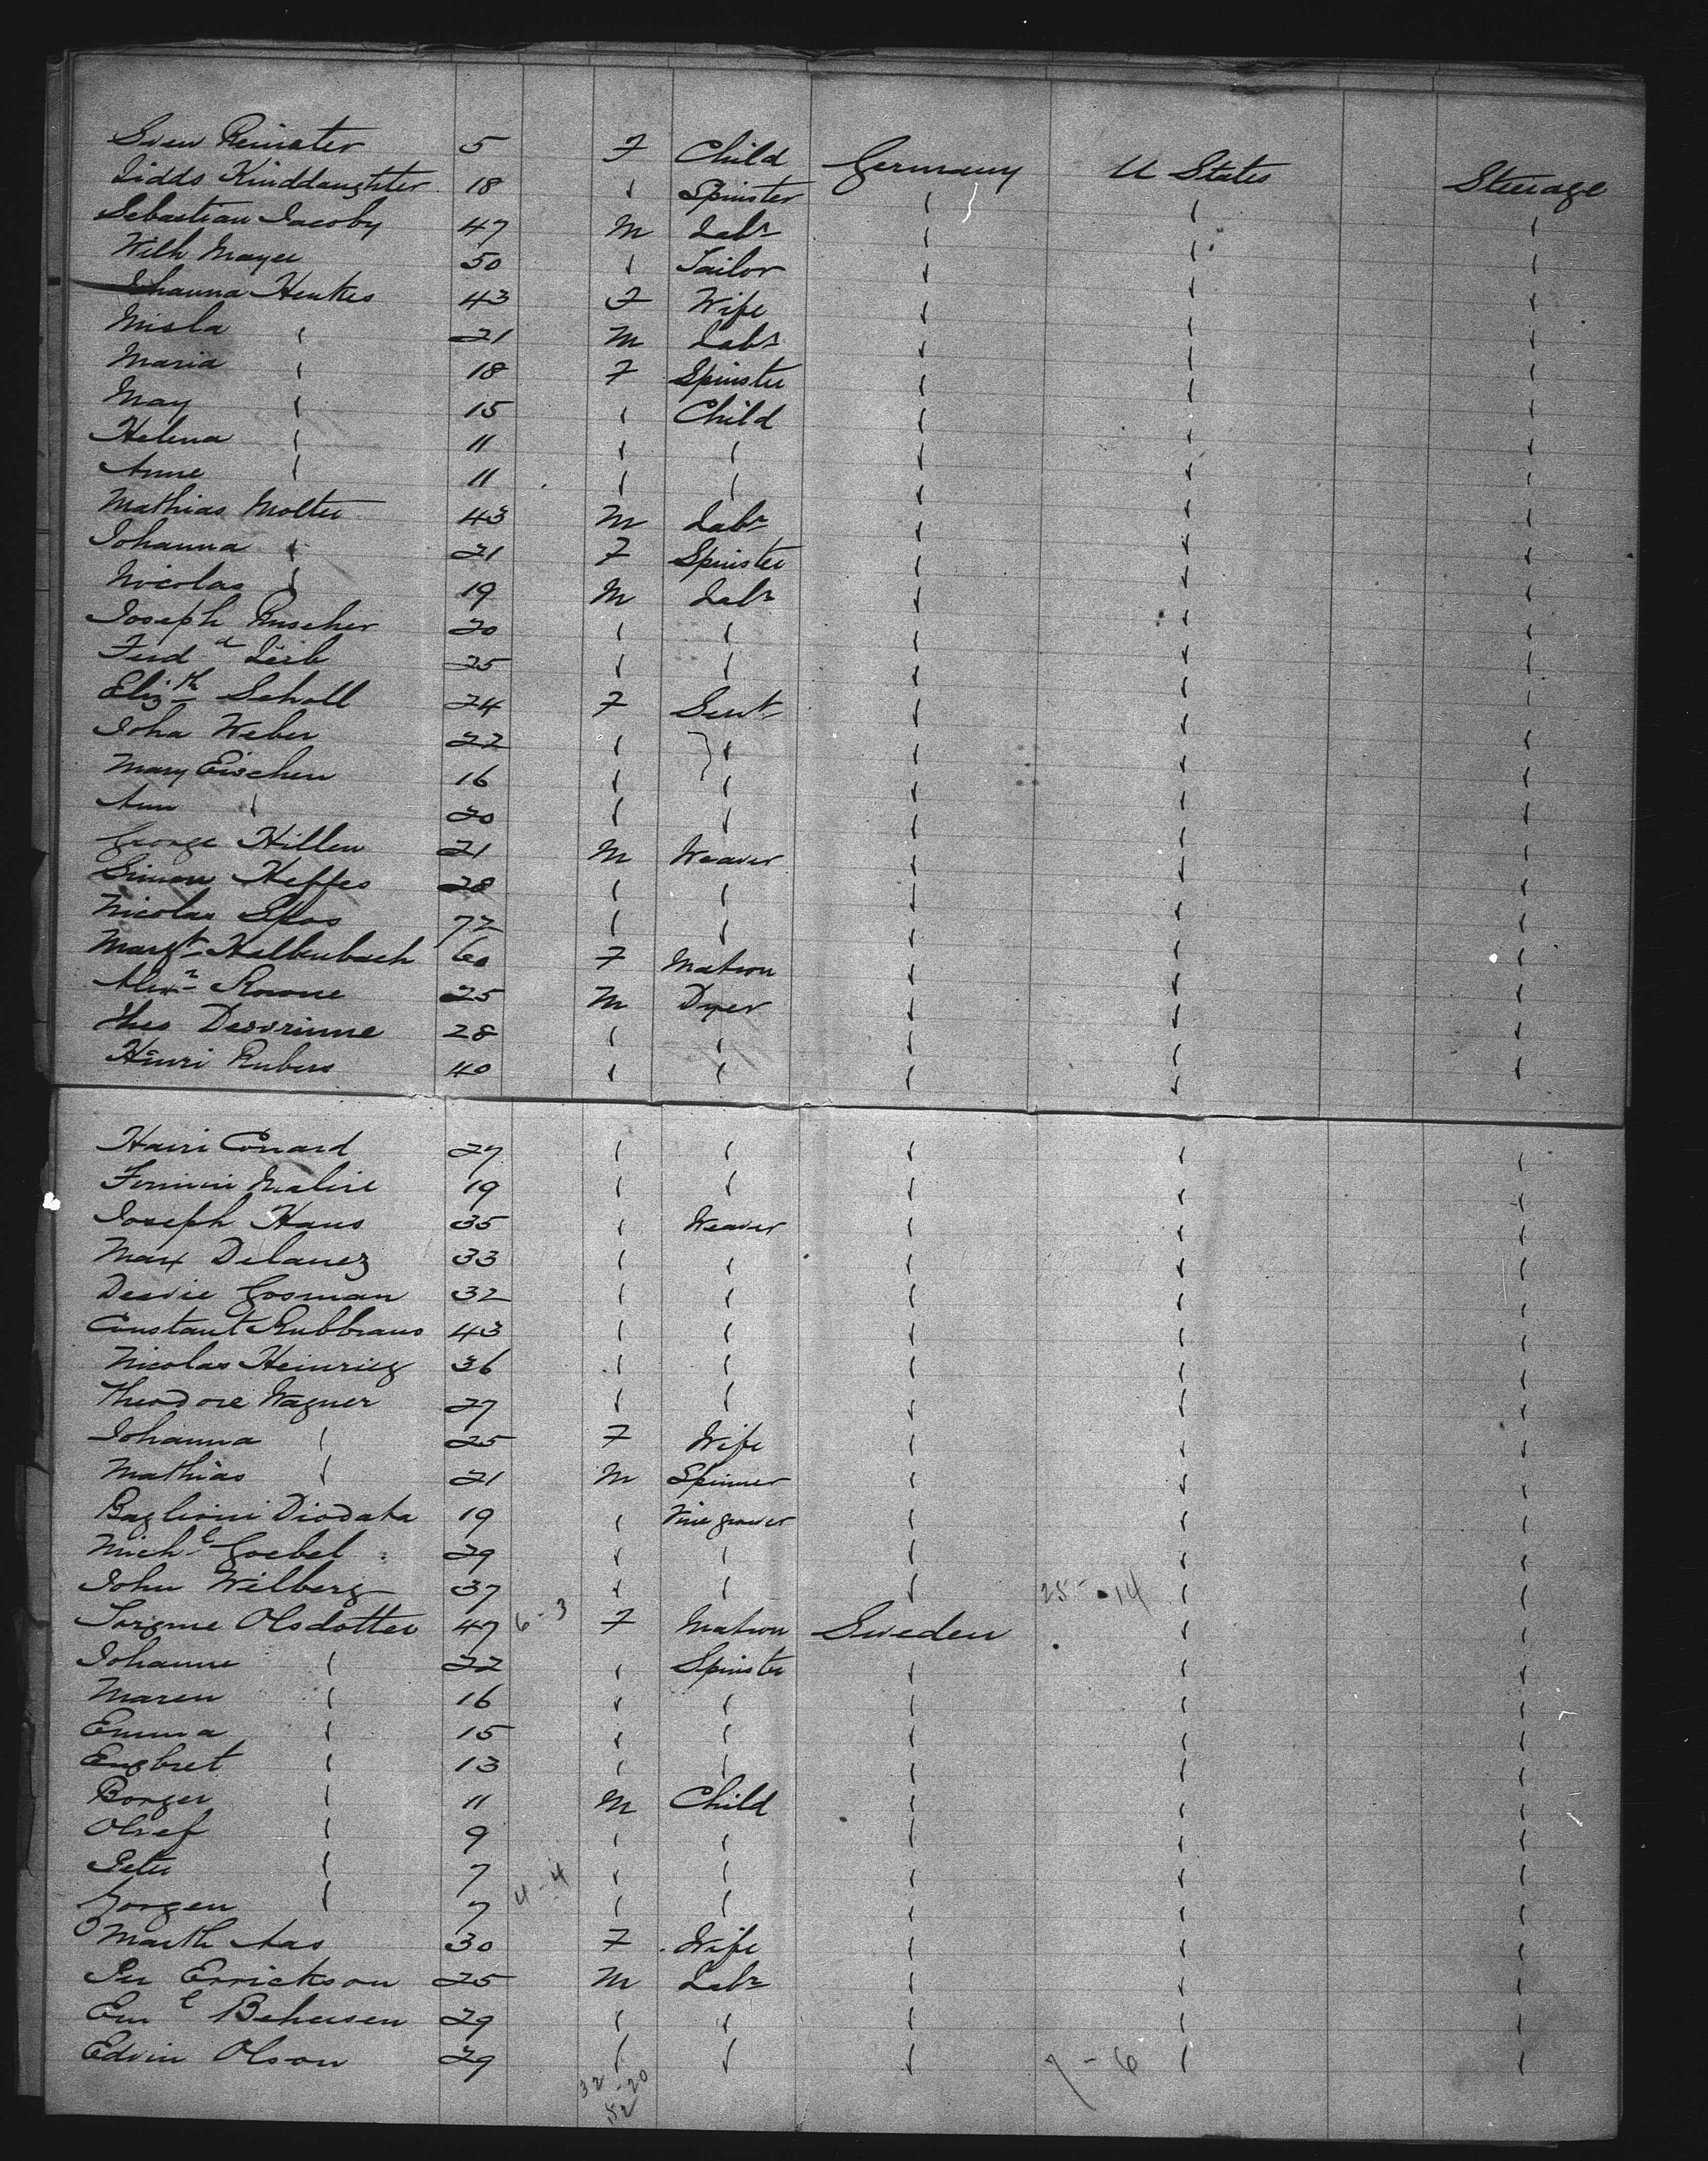 Sven Reinster 5 F Child Germany U States Steerage
Lidds Kinddaughter 18 " Spinster " " "
Sebastian Jacoby 47 M Labr " " "
Wilh Mayer 50 " Tailor " " "
Johanna Henkes 43 F Wife " " "
Misla " 21 M Labr " " "
Maria " 18 F Spinster " " "
May " 15 " Child " " "
Helena " 11 " " " " "
Anne " 11 " " " " "
Mathias Molter 43 M Labr " " "
Johanna " 21 F Spinster " " "
Nicolas " 19 M Labr " " "
Joseph Ruscher 20 " " " " "
Ferdd Leib 25 " " " " "
Elizth Scholl 24 F Servt " " "
Joha Weber 22 " " " " "
Mary Eischen 16 " " " " "
Ann " 20 " " " " "
George Hillen 21 M Weaver " " "
Simon Heffes 28 " " " " "
Nicolas 72 " " " " "
Margt Halbenbach 60 F Matron " " "
Alexr Rowne 25 M Dyer " " "
Devorinne 28 " " " " "
Henri Rubens 40 " " " " "
Hairi Conard 27 " " " " "
Firmin Malire 19 " " " " "
Joseph Hans 35 " Weaver " " "
Max Delanez 33 " " " " "
Desvie Gosman 32 " " " " "
Constant Rubbraus 43 " " " " "
Nicolas Heinricz 36 " " " " "
Theodore Wagner 27 " " " " "
Johanna " 25 F Wife " " "
Mathias " 21 M Spinner " " "
Baglivini Diodata 19 " Vine grower " " "
Michl Goebel 29 " " " " "
John Wilberg 37 " " " 25-14 " "
Olsdotter 47 6-3 F Matron Sweden " "
Johanne " 22 " Spinster " " "
Maren " 16 " " " " "
Emma " 15 " " " " "
Engbret " 13 " " " " "
Borger " 11 M Child " " "
Olref " 9 " " " " "
Peter " 7 " " " " "
Jorgen " 7 4-4 " " " " "
Marth Aas 30 F Wife " " "
Per Errickson 25 M Labr " " "
Eml Behersen 29 " " " " "
Edvin Olson 29 " " " 7-6 " "
32-20
52